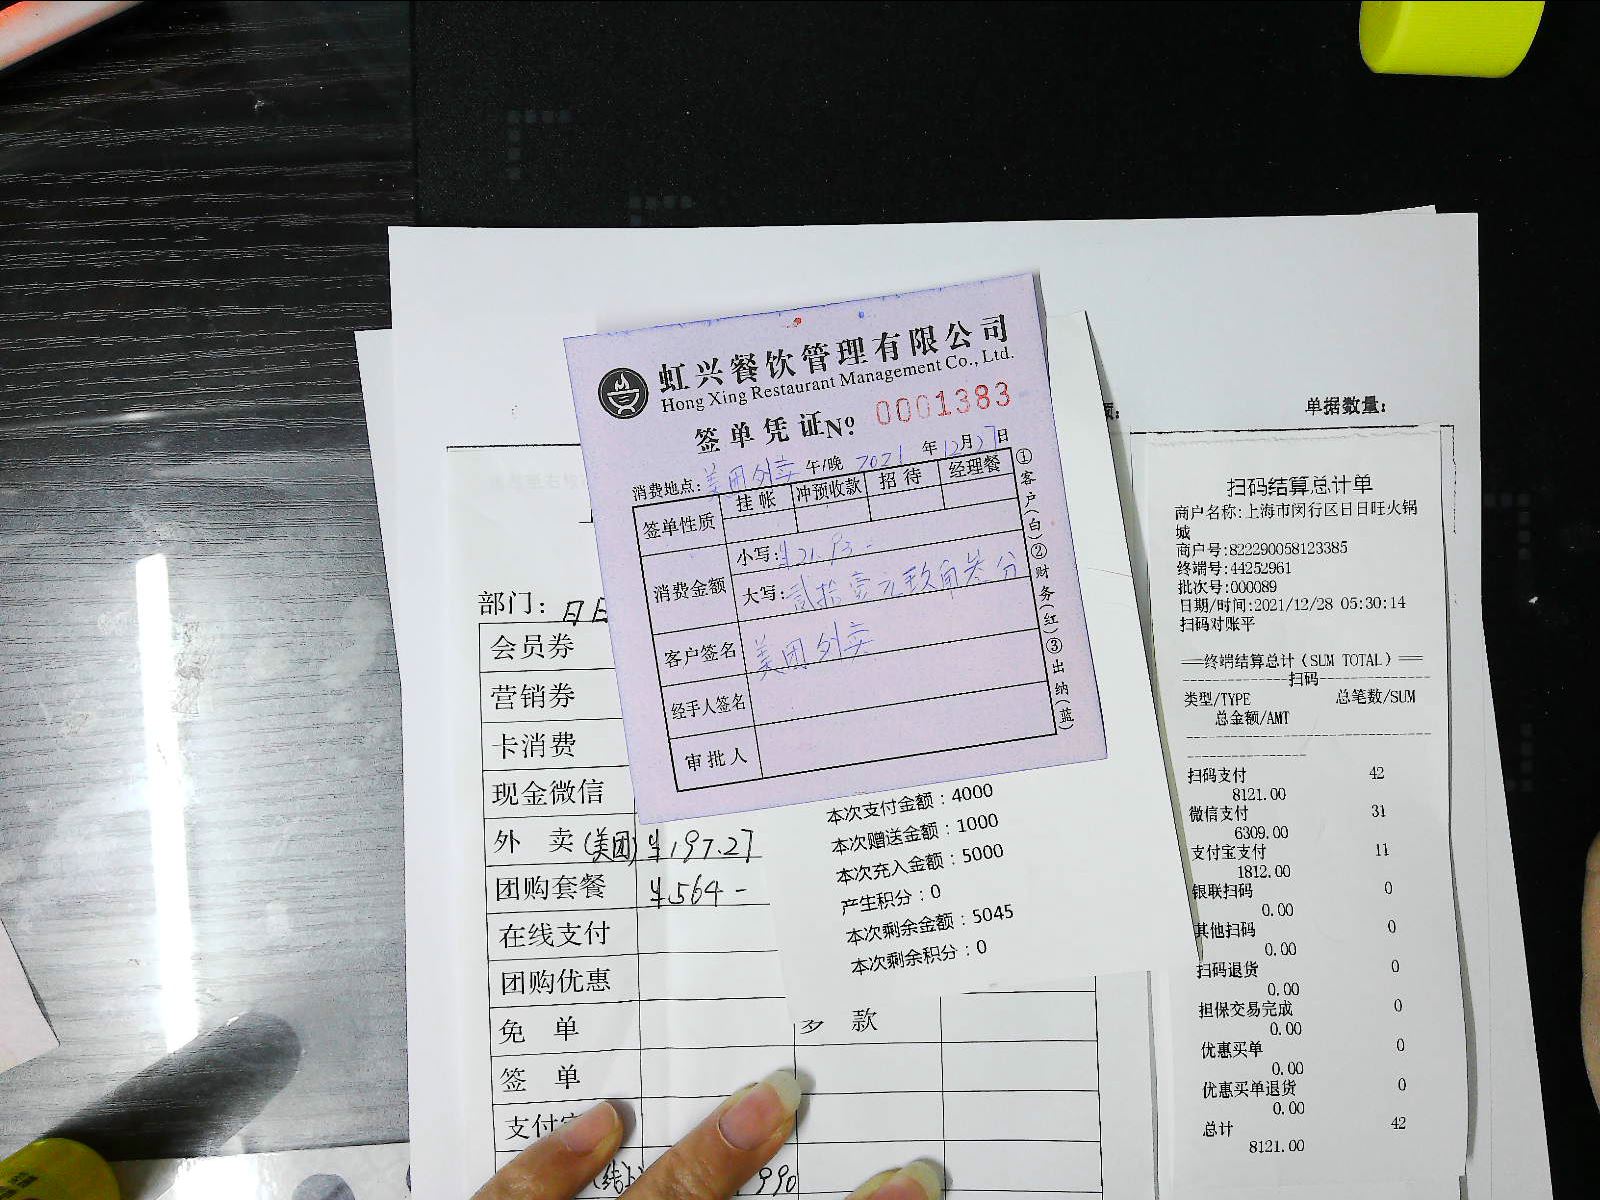 虹兴餐饮管理有限公司
Hong Xing Restaurant Management Co., Ltd.
签单凭证 No. 0001383
消费地点：美团外卖 午/晚 2021年12月27日
签单性质 挂帐 冲预收款 招待 经理餐
消费金额 小写：¥21.93-
大写：贰拾壹元玖角叁分
客户签名 美团外卖
经手人签名
审批人
①客户(白)②财务(红)③出纳(蓝)
单据数量：
部门：日日
会员券
营销券
卡消费
现金微信
外 卖 (美团) ¥197.27
团购套餐 ¥564-
在线支付
团购优惠
免 单
签 单
支付
990
款
本次支付金额：4000
本次赠送金额：1000
本次充入金额：5000
产生积分：0
本次剩余金额：5045
本次剩余积分：0
扫码结算总计单
商户名称:上海市闵行区日日旺火锅
城
商户号:822290058123385
终端号:44252961
批次号:000089
日期/时间:2021/12/28 05:30:14
扫码对账平
==终端结算总计(SUM TOTAL)==
扫码
类型/TYPE 总笔数/SUM
总金额/AMT
扫码支付 42
8121.00
微信支付 31
6309.00
支付宝支付 11
1812.00
银联扫码 0
0.00
其他扫码 0
0.00
扫码退货 0
0.00
担保交易完成 0
0.00
优惠买单 0
0.00
优惠买单退货 0
0.00
总计 42
8121.00